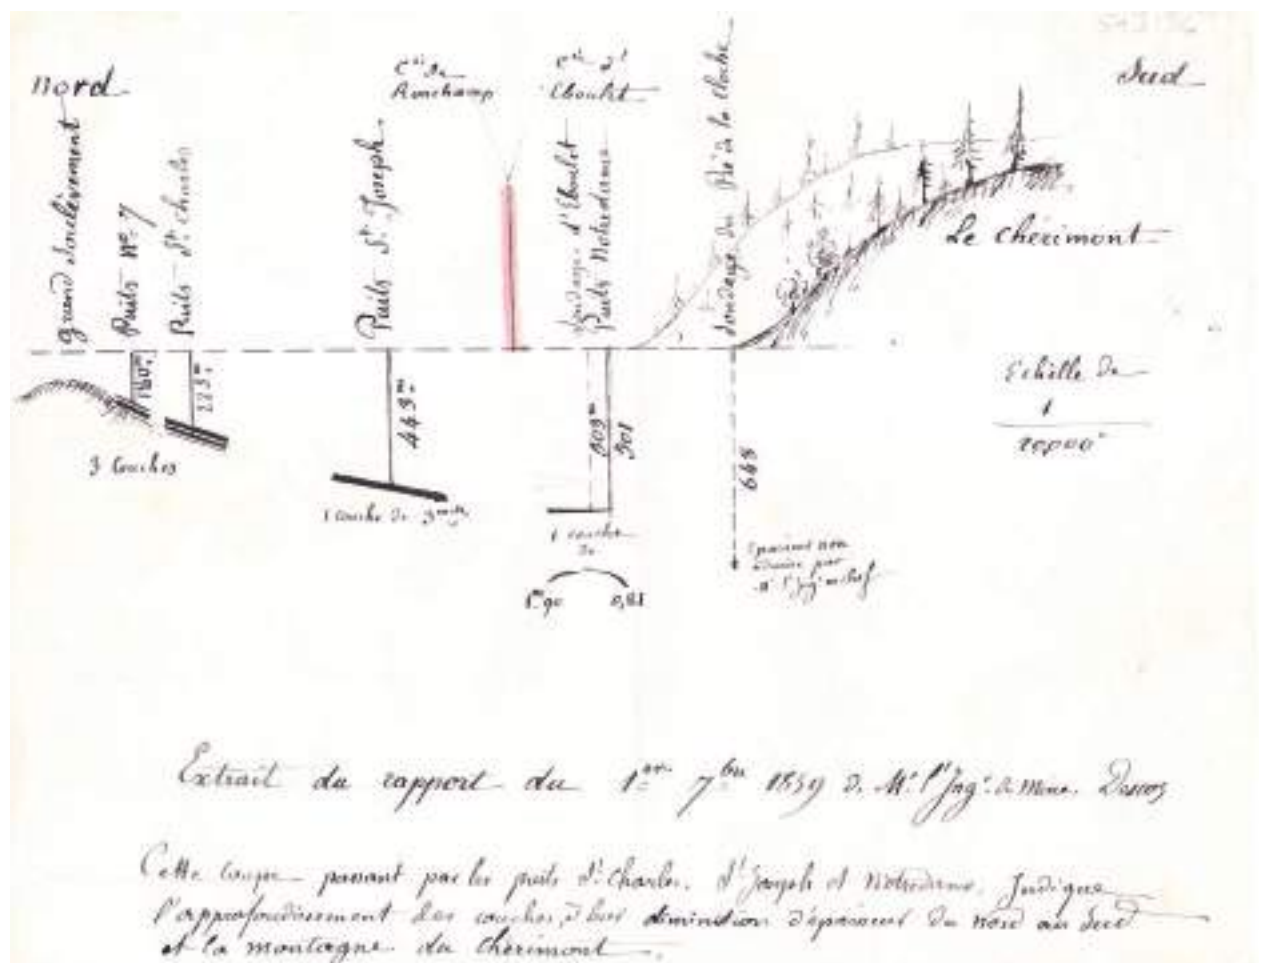 Nord
Sud
Cie de
Ronchamp
Cie d'
Eboulet
grand soulèvement
Puits No. 7
Puits St. Charles
Puits St. Joseph.
Sondage d'Eboulet
Puits Notredame
Sondage du Pré de la Cloche
Le Chérimont
160m
225m
443m
509m
501
649
3 Couches
1 couche de 3m
1 couche
de
1m90 0,81
Epaisseur non
par
Mr l'Ingr en chef
Echelle de
1
20,000e
Extrait du rapport du 1er 7bre 1859 de Mr. l'Ingr. de mine. Descos
Cette coupe passant par les puits St. Charles, St. Joseph et Notredame, Indique
l'approfondissement des couches, diminution d'épaisseur du nord au Sud
et la montagne du Chérimont.